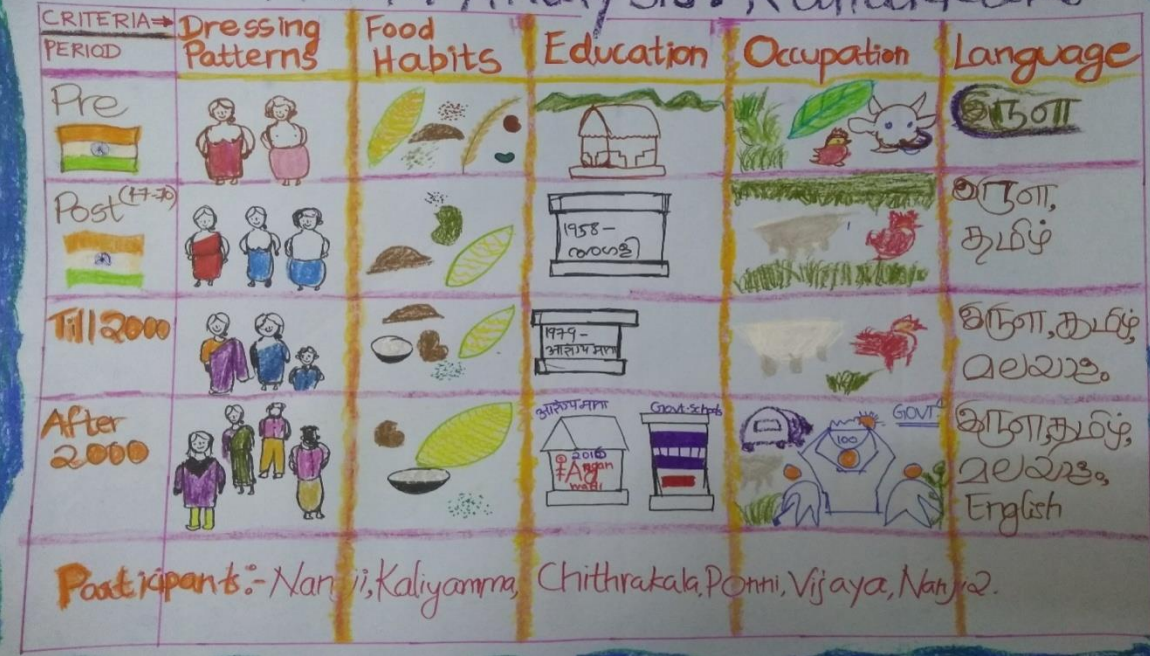 CRITERIA⇒ Dressing Patterns Food Habits Education Occupation Language
PERIOD
Pre
இருளா
Post (47-70)
1958-
இருளா,
தமிழ்
Till 2000
1979-
இருளா, தமிழ்,
മലയാളം
After 2000
Govt. School
GOVT
2010
Angan
wadi
100
இருளா, தமிழ்,
മലയാളം,
English
Participants:- Nanji, Kaliyamma, Chithrakala, Ponni, Vijaya, Nanji2.